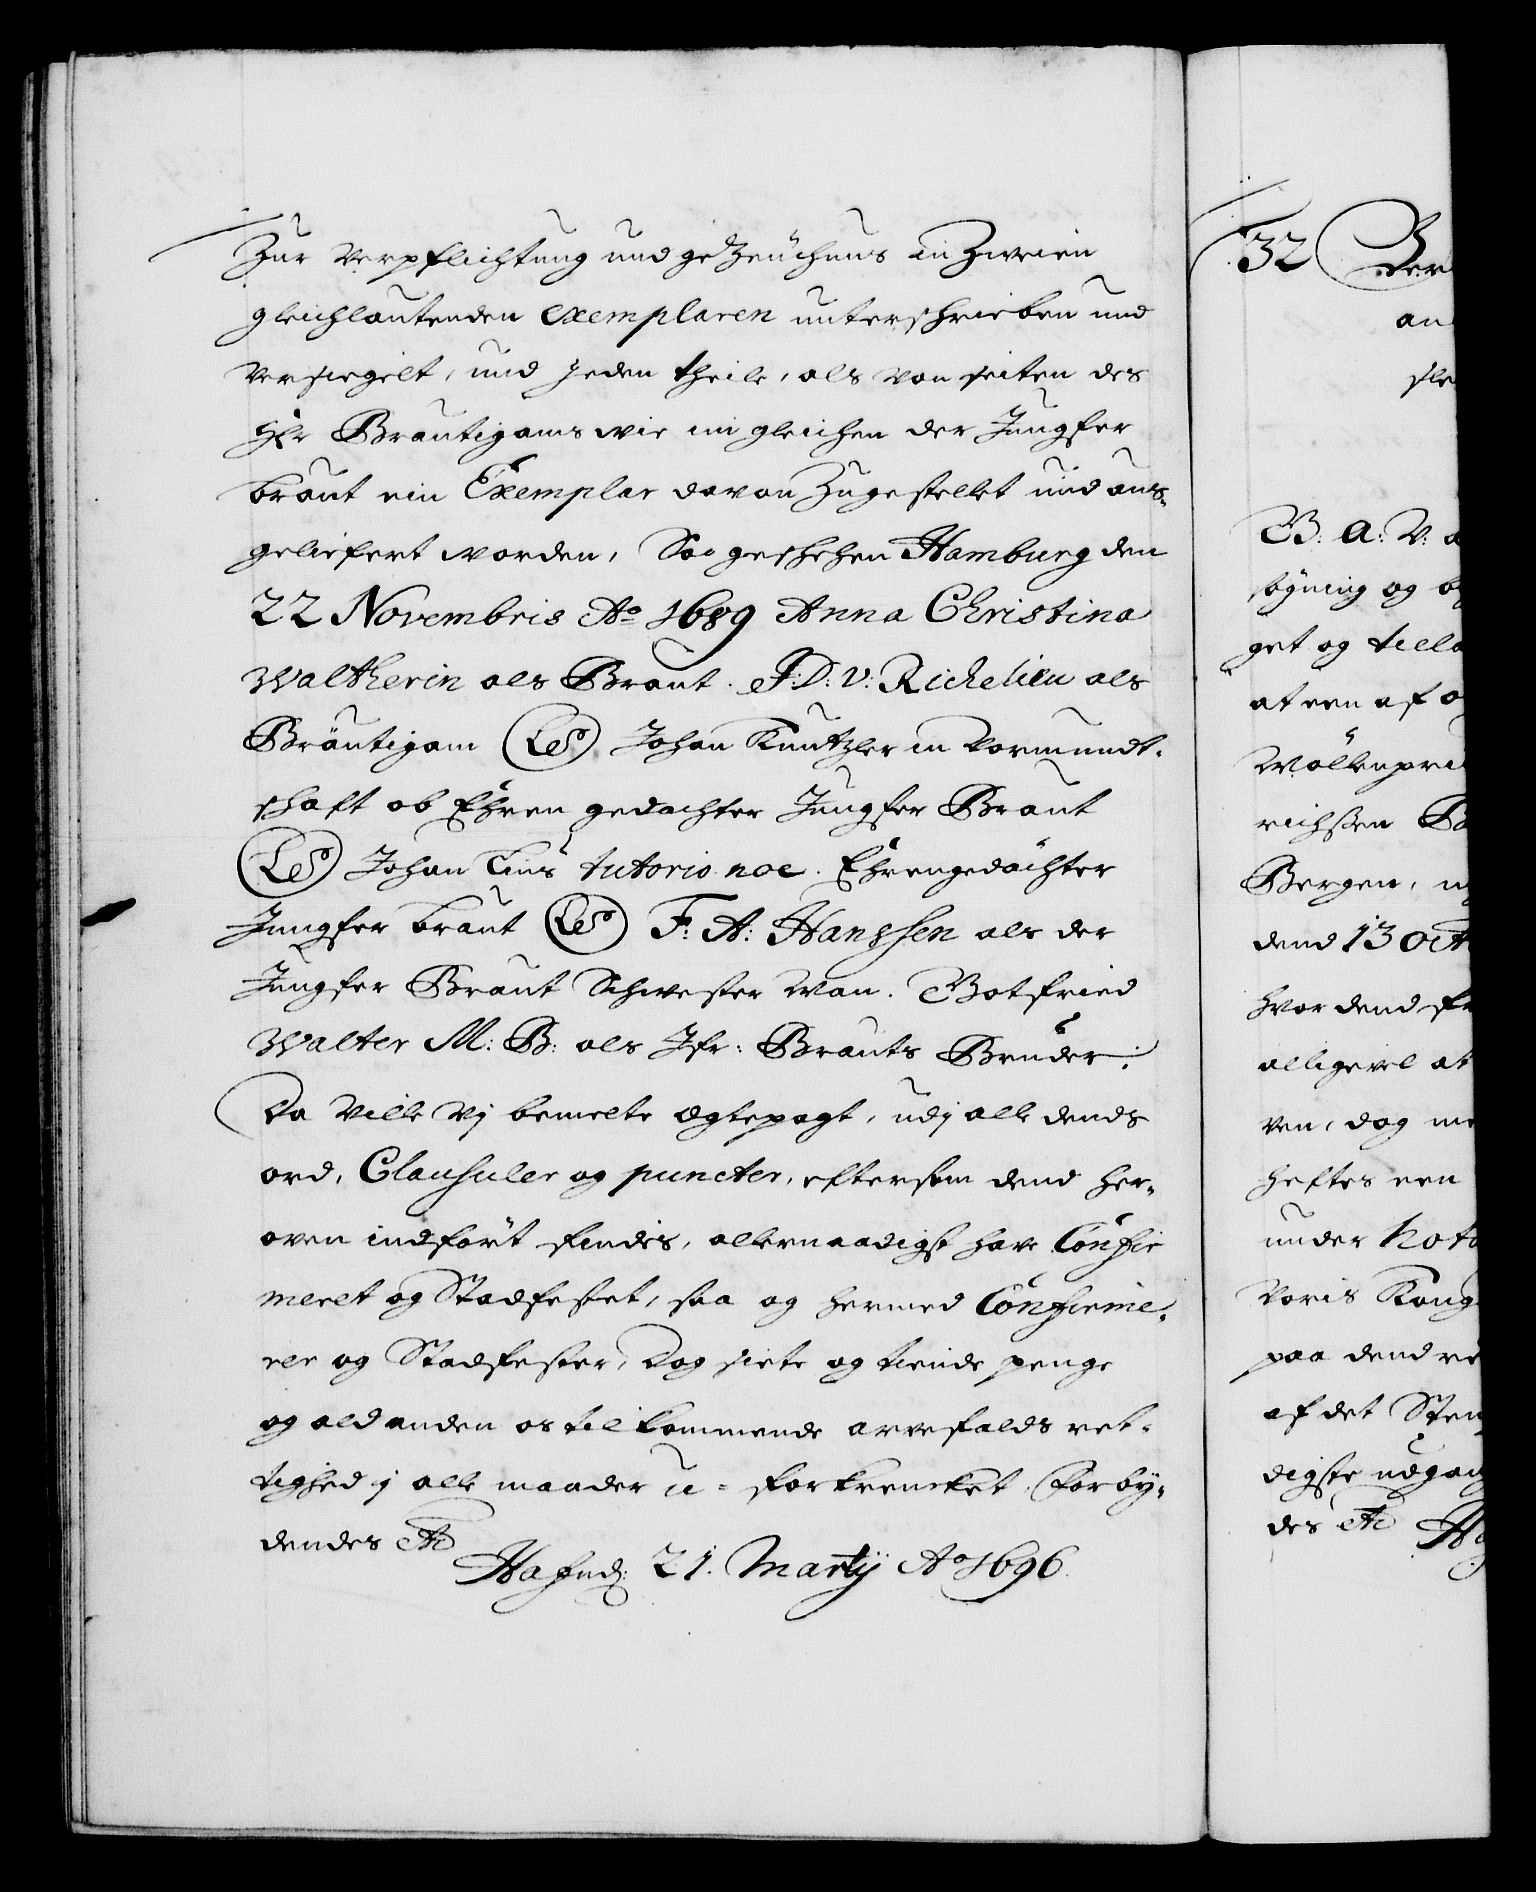 Zur Verpflichtung und gezeüchnus in Zweien
gleichlautenden Exemplaren unterschrieben und
versiegelt, und jeden theile, als von seiten des
Hr Bräutigams wie im gleichen der Jungfer
braut ein Exemplar davon Zugestellet und aus-
geliefert worden, So geschehen Hamburg den
22 Novembris Ao 1689 Anna Christina
Waltherin als Braut. J: D: v: Richelieu als
Bräutigam (LS) Johan Kuntzler in Vormundt-
schaft ob Ehren gedachter Jungfer Braut
(LS) Johan tutorio noe. Ehrengedachter
Jungfer braut (LS) F: A: Hanssen als der
Jungfer Braut Schwester Man. Gotfried
Walter M: B: als Jfr: Brauts Bruder:/
Da Ville Vj bemelte Ægtepagt, udj alle dends
ord, Clausuler og puncter, eftersom dend her-
oven indført findes, allernaadigst have Confir
meret og Stadfestet, saa og hermed Confirme-
rer og Stadfester, Dog siete og tiende penge
og ald anden os tilkommende arvefalds ret-
tighed j alle maader u-forkrencket. Forby-
dendes etc
Hafnd: 21. Martij Ao 1696.
32 Ver
an
B: A: V: a
søgning og be
get og tilla
at een af o
richsen B
Bergen, u
dend 13 oct
hvor dend
alligevel at
ven, dog me
heftes een
under Hoto
Voris Kong
paa dend re
af det Stem
digste udgan
des etc Ha